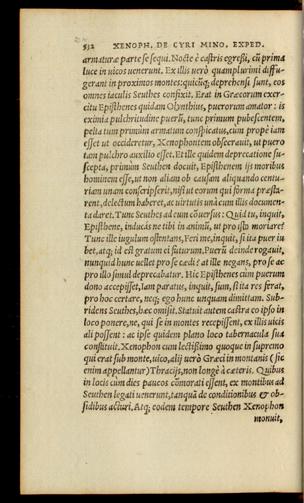 532 XENOPH. DE CYRI MINO. EXPED.
armaturæ parte se sequi. Nocte è castris egressi, cũ prima
luce in uicos uenerunt. Ex illis uerò quamplurimi diffu-
gerunt in proximos montes: quicũq; deprehensi sunt, eos
omnes iaculis Seuthes confixit. Erat in Græcorum exer-
citu Episthenes quidam Olynthius, puerorum amator: is
eximia pulchritudine puerũ, tunc primum pubescentem,
pelta tum primùm armatum conspicatus, cum propè iam
esset ut occideretur, Xenophontem obsecrauit, ut puero
tam pulchro auxilio esset. Et ille quidem deprecatione su-
scepta, primùm Seuthen docuit, Episthenem ijs moribus
hominem esse, ut non aliam ob causam aliquando centu-
riam unam conscripserit, nisi ut eorum qui forma præsta-
rent, delectum haberet, ac uirtutis unà cum illis documen-
ta daret. Tunc Seuthes ad eum cõuersus: Quid tu, inquit,
Episthene, inducás ne tibi in animũ, ut pro isto moriare?
Tunc ille iugulum ostentans, Feri me, inquit, si ita puer iu
bet, atq; id est gratum ei futurum. Puerũ deinde rogauit,
nunquid hunc uellet pro se cædi: at ille negans, pro se ac
pro illo simul deprecabatur. Hic Episthenes cùm puerum
dono accepisset, Iam paratus, inquit, sum, si ita res ferat,
pro hoc certare, neq; ego hunc unquam dimittam. Sub-
ridens Seuthes, hæc omisit. Statuit autem castra eo ipso in
loco ponere, ne, qui se in montes recepissent, ex illis uicis
ali possent: ac ipse quidem plano loco tabernacula sua
constituit. Xenophon cum lectissimo quoque in supremo
qui erat sub monte, uico, alij uerò Græci in montanis (sic
enim appellantur) Thracijs, non longè à cæteris. Quibus
in locis cum dies paucos cõmorati essent, ex montibus ad
Seuthen legati uenerunt, tanquã de conditionibus & ob-
sidibus acturi. Atq; eodem tempore Seuthen Xenophon
monuit,